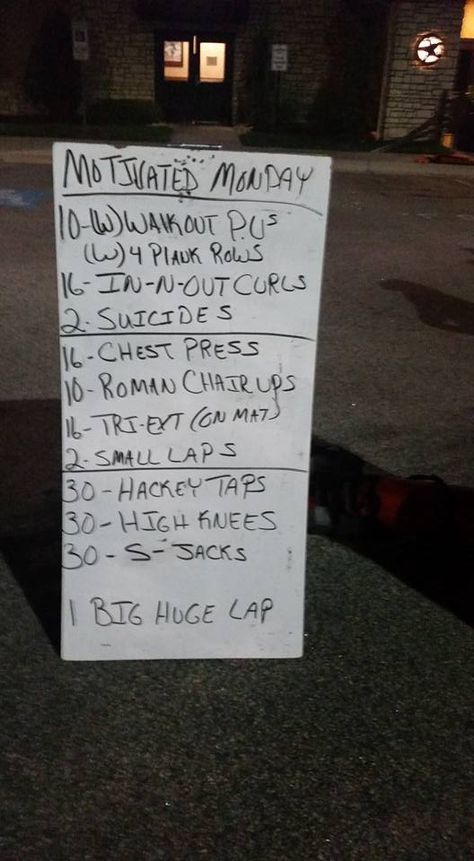 MOTIVATED MONDAY
10-(W) WALKOUT P.U.S
(W) 4 PLANK ROWS
16- IN-N-OUT CURLS
2- SUICIDES
16- CHEST PRESS
10- ROMAN CHAIR UPS
16- TRI-EXT (ON MAT)
2- SMALL LAPS
30- HACKEY TAPS
30- HIGH KNEES
30- S- JACKS
1 BIG HUGE LAP